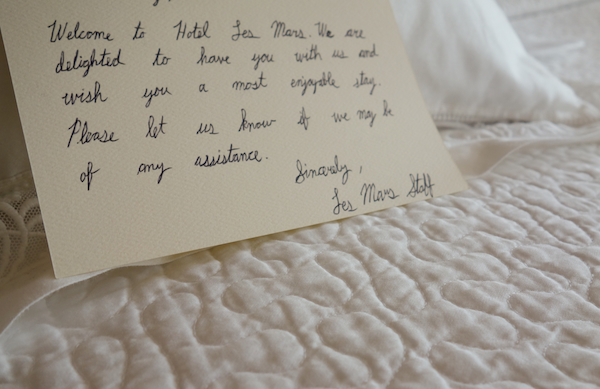 Welcome to Hotel Les Mars. We are
delighted to have you with us and
wish you a most enjoyable stay.
Please let us know if we may be
of any assistance.
Sincerely,
Les Mars Staff